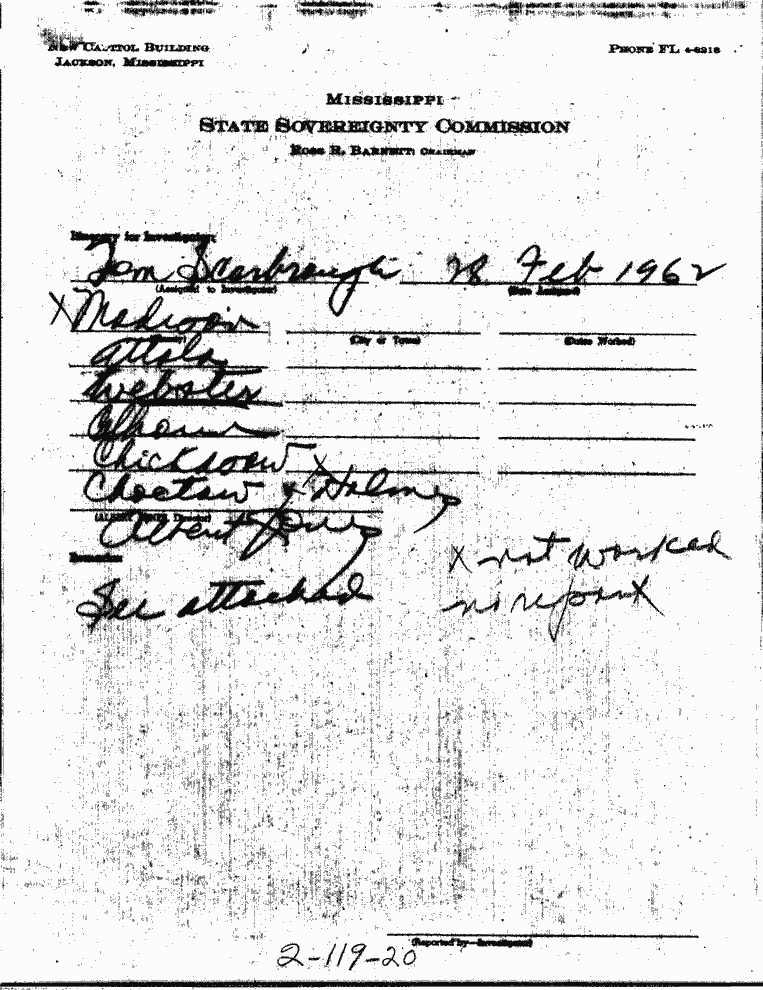 New Capitol Building
Jackson, Mississippi
Phone FL 4-3218
Mississippi
State Sovereignty Commission
Ross R. Barnett, Chairman
Itinerary for Investigation:
Tom Scarbrough 28 Feb 1962
(Assigned to Investigator) (Date Assigned)
X Madison
(City or Town) (Dates Worked)
Attala
Webster
Calhoun
Chickasaw
Choctaw X Holmes
Albert Jones
Remarks:
See attached
X not worked
no report
(Reported by—Investigator)
2-119-20